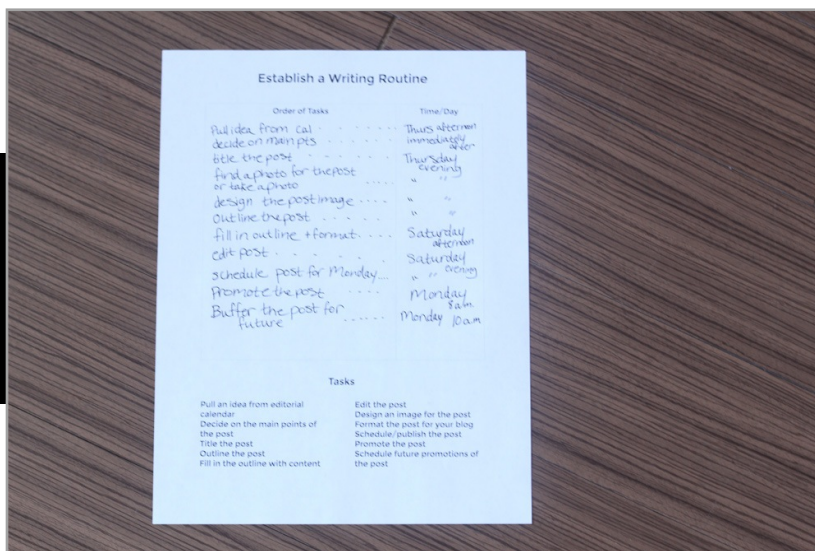 Establish a Writing Routine
Order of Tasks Time/Day
Pull idea from cal . . . . . . . Thurs afternoon
decide on main pts . . . . . immediately after
title the post . . . . . . . Thursday evening
find a photo for the post
or take a photo ..... " "
design the post image .... " "
outline the post . . . . . " "
fill in outline + format. . . . Saturday afternoon
edit post . . . . . . Saturday evening
schedule post for Monday.... " "
Promote the post . . . . Monday 8am
Buffer the post for
future ...... Monday 10am
Tasks
Pull an idea from editorial
calendar
Decide on the main points of
the post
Title the post
Outline the post
Fill in the outline with content
Edit the post
Design an image for the post
Format the post for your blog
Schedule/publish the post
Promote the post
Schedule future promotions of
the post